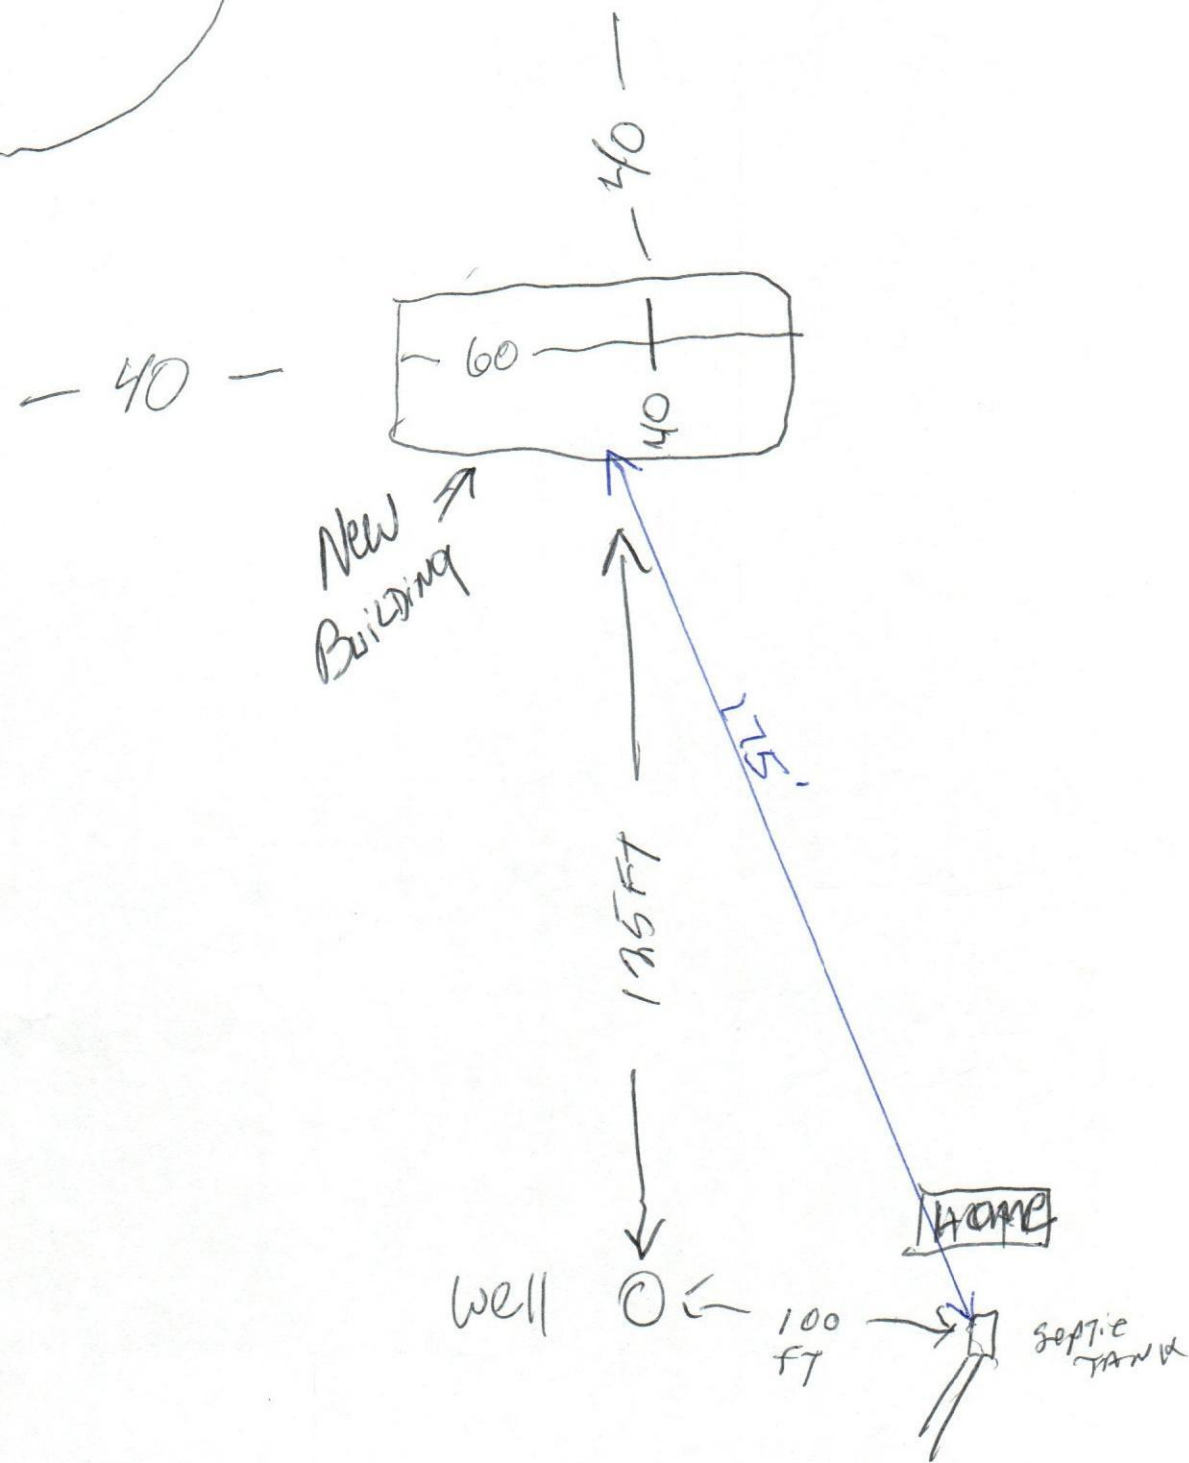 40
40
60
40
New
Building
275'
125 FT
HOME
Well
100
FT
septic
TANK